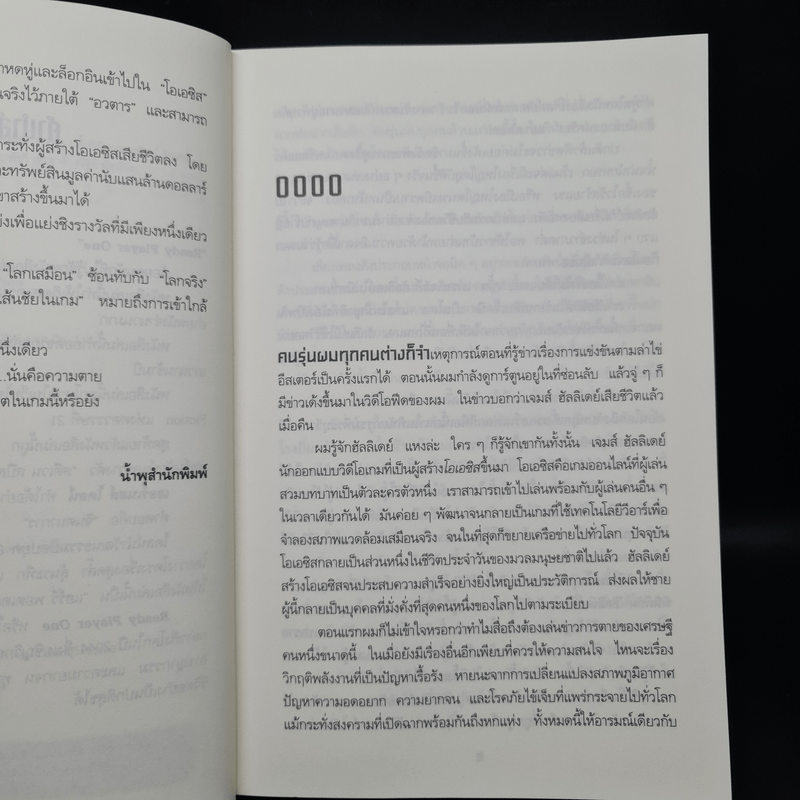 าหดหู่และล็อกอินเข้าไปใน “โอเอซิส”
นจริงไว้ภายใต้ “อวตาร” และสามารถ
กระทั่งผู้สร้างโอเอซิสเสียชีวิตลง โดย
ละทรัพย์สินมูลค่านับแสนล้านดอลลาร์
ขาสร้างขึ้นมาได้
ข่งเพื่อแย่งชิงรางวัลที่มีเพียงหนึ่งเดียว
“โลกเสมือน” ซ้อนทับกับ “โลกจริง”
เส้นชัยในเกม” หมายถึงการเข้าใกล้
นึ่งเดียว
...นั่นคือความตาย
ตในเกมนี้หรือยัง
น้ำพุสำนักพิมพ์
0000
คนรุ่นผมทุกคนต่างก็จำเหตุการณ์ตอนที่รู้ข่าวเรื่องการแข่งขันตามล่าไข่
อีสเตอร์เป็นครั้งแรกได้ ตอนนั้นผมกำลังดูการ์ตูนอยู่ในที่ซ่อนลับ แล้วจู่ ๆ ก็
มีข่าวเด้งขึ้นมาในวิดีโอฟีดของผม ในข่าวบอกว่าเจมส์ ฮัลลิเดย์เสียชีวิตแล้ว
เมื่อคืน
ผมรู้จักฮัลลิเดย์ แหงล่ะ ใคร ๆ ก็รู้จักเขากันทั้งนั้น เจมส์ ฮัลลิเดย์
นักออกแบบวิดีโอเกมที่เป็นผู้สร้างโอเอซิสขึ้นมา โอเอซิสคือเกมออนไลน์ที่ผู้เล่น
สวมบทบาทเป็นตัวละครตัวหนึ่ง เราสามารถเข้าไปเล่นพร้อมกับผู้เล่นคนอื่น ๆ
ในเวลาเดียวกันได้ มันค่อย ๆ พัฒนาจนกลายเป็นเกมที่ใช้เทคโนโลยีวีอาร์เพื่อ
จำลองสภาพแวดล้อมเสมือนจริง จนในที่สุดก็ขยายเครือข่ายไปทั่วโลก ปัจจุบัน
โอเอซิสกลายเป็นส่วนหนึ่งในชีวิตประจำวันของมวลมนุษยชาติไปแล้ว ฮัลลิเดย์
สร้างโอเอซิสจนประสบความสำเร็จอย่างยิ่งใหญ่เป็นประวัติการณ์ ส่งผลให้ชาย
ผู้นี้กลายเป็นบุคคลที่มั่งคั่งที่สุดคนหนึ่งของโลกไปตามระเบียบ
ตอนแรกผมก็ไม่เข้าใจหรอกว่าทำไมสื่อถึงต้องเล่นข่าวการตายของเศรษฐี
คนหนึ่งขนาดนี้ ในเมื่อยังมีเรื่องอื่นอีกเพียบที่ควรให้ความสนใจ ไหนจะเรื่อง
วิกฤติพลังงานที่เป็นปัญหาเรื้อรัง หายนะจากการเปลี่ยนแปลงสภาพภูมิอากาศ
ปัญหาความอดอยาก ความยากจน และโรคภัยไข้เจ็บที่แพร่กระจายไปทั่วโลก
แม้กระทั่งสงครามที่เปิดฉากพร้อมกันถึงหกแห่ง ทั้งหมดนี้ให้อารมณ์เดียวกับ